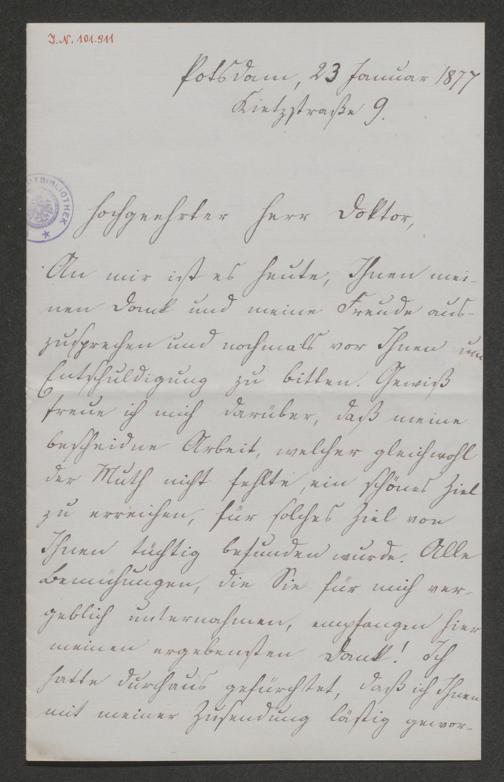 J.N. 101.911
Potsdam, 23 Januar 1877
Kietzstraße 9.
BIBLIOTHEK
Hochgeehrter Herr Doktor,
An mir ist es heute, Ihnen mei-
nen Dank und meine Freude aus-
zusprechen und nochmals vor Ihnen um
Entschuldigung zu bitten. Gewiß
freue ich mich darüber, daß meine
bescheidne Arbeit, welcher gleichwohl
der Muth nicht fehlte, ein schönes Ziel
zu erreichen, für solches Ziel von
Ihnen tüchtig befunden wurde. Alle
Bemühungen, die Sie für mich ver-
geblich unternahmen, empfangen hier
meinen ergebensten Dank! Ich
hatte durchaus gefürchtet, daß ich Ihnen
mit meiner Zusendung lästig gewor-